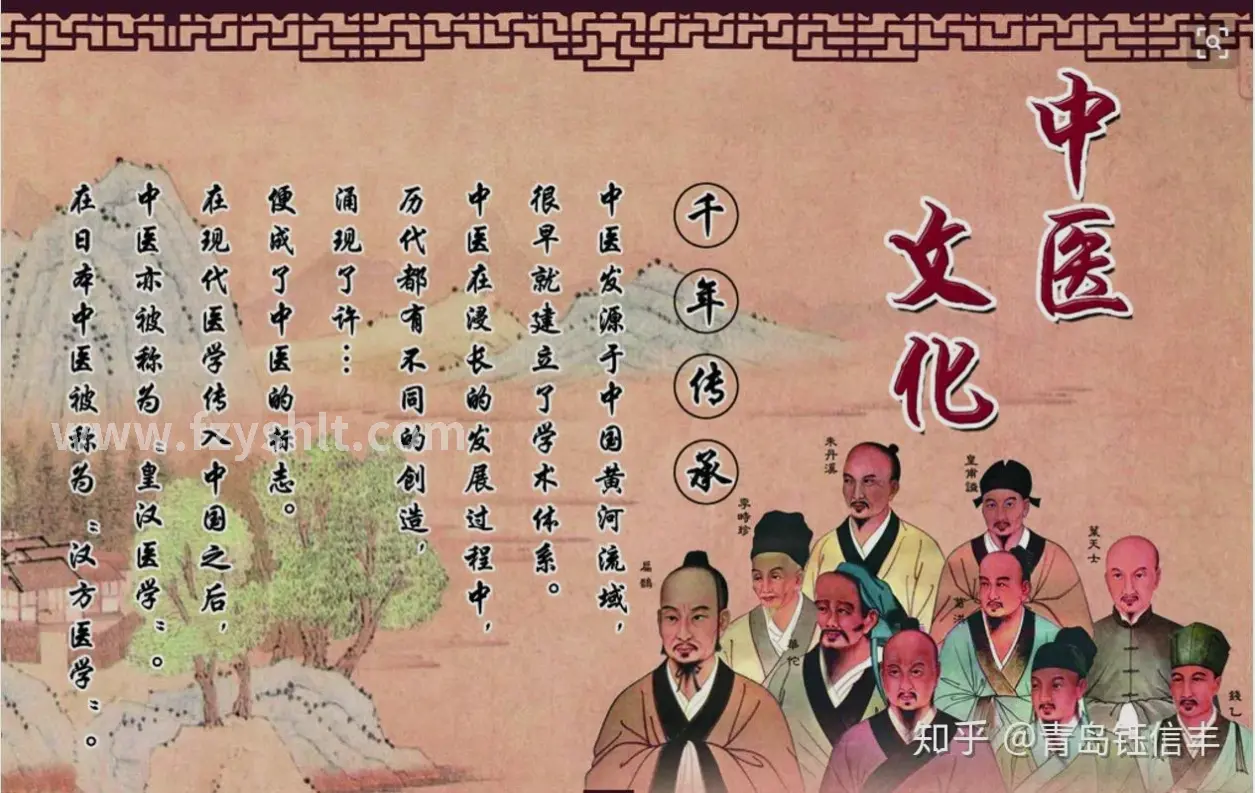 中医
文化
千年传承
中医发源于中国黄河流域，
很早就建立了学术体系。
中医在浸长的发展过程中，
历代都有不同的创造，
涌现了许…
便成了中医的标志。
在现代医学传入中国之后，
中医亦被称为“皇汉医学”。
在日本中医被称为“汉方医学”。
朱丹溪
皇甫謐
李時珍
葉天士
扁鵲
葛洪
華佗
錢乙
www.fzyshlt.com
知乎 @青岛钰信丰